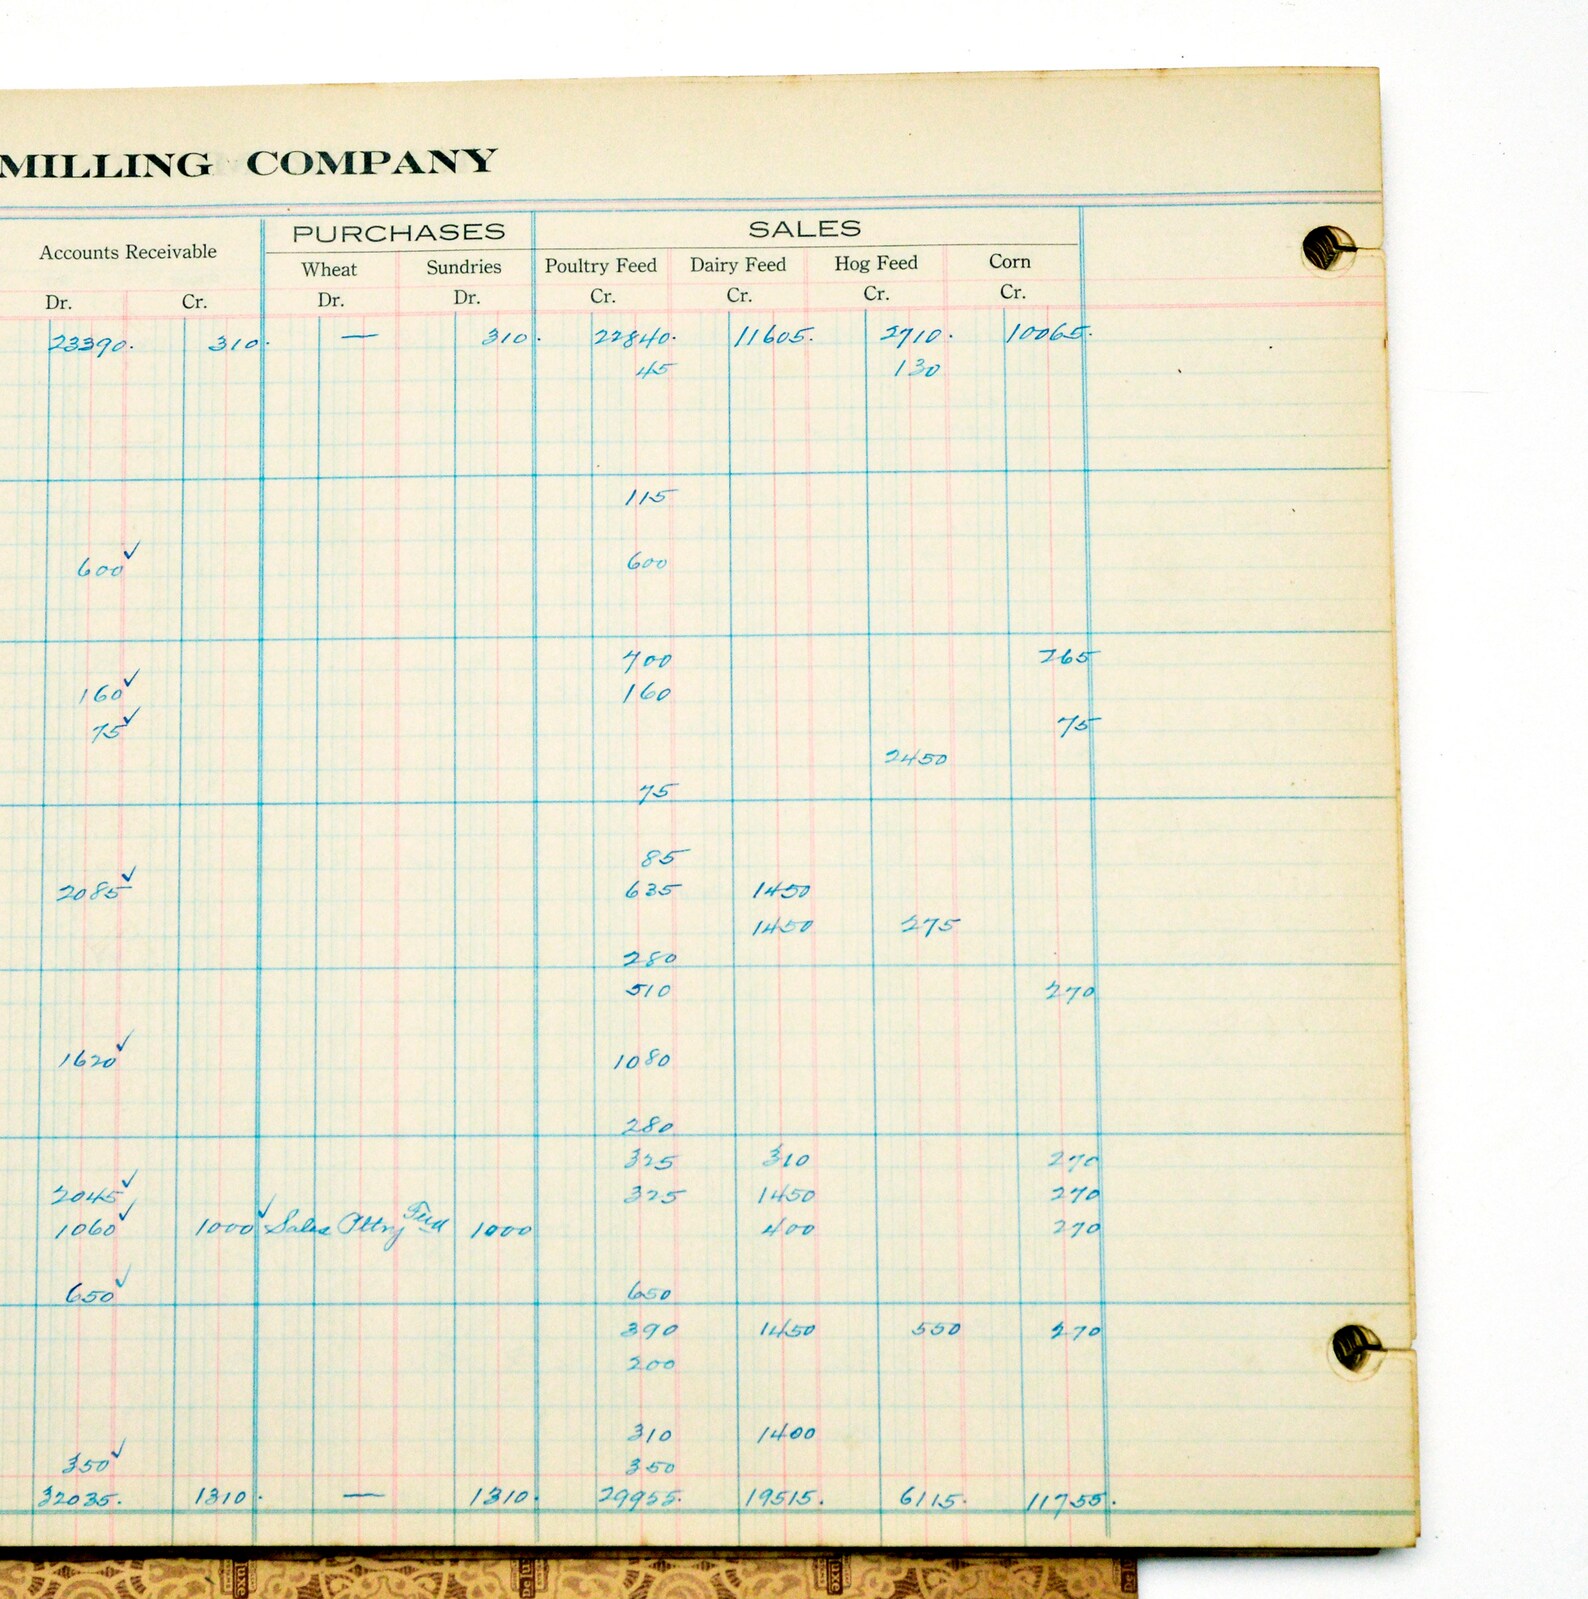 MILLING COMPANY
PURCHASES SALES
Accounts Receivable Wheat Sundries Poultry Feed Dairy Feed Hog Feed Corn
Dr. Cr. Dr. Dr. Cr. Cr. Cr. Cr.
23390. 310. — 310. 22840. 11605. 2710. 10065.
45 130
115
600✓ 600
700 265
160✓ 160
75✓ 75
2450
75
85
2085✓ 635 1450
1450 275
280
510 270
1620✓ 1080
280
325 310 270
2045✓ 325 1450 270
1060✓ 1000✓ Sales Pltry Feed 1000 400 270
650✓ 650
390 1450 550 270
200
310 1400
350✓ 350
32035. 1310. — 1310. 29955. 19515. 6115. 11755.